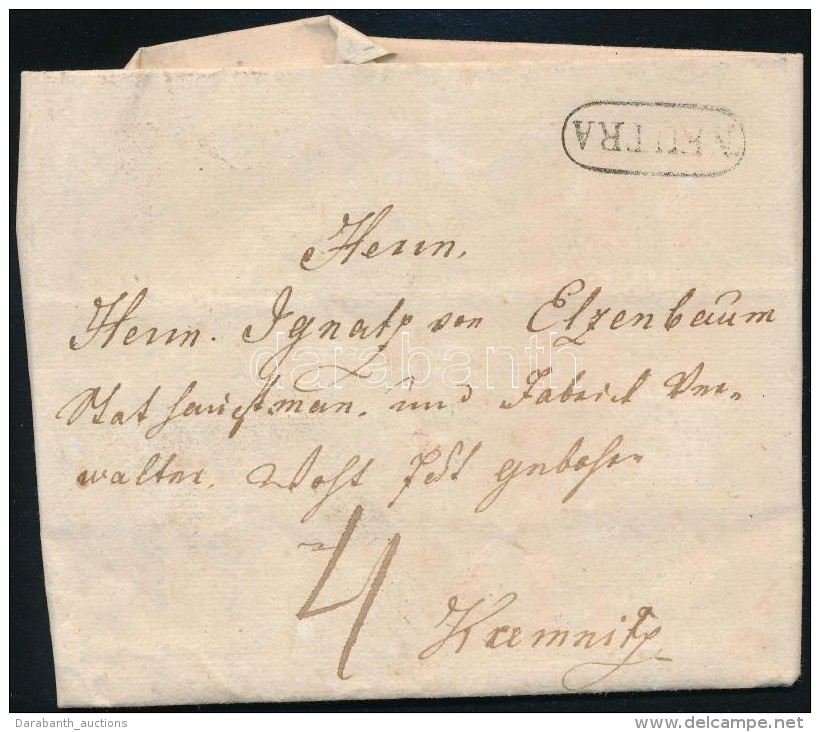 NEUTRA
Herrn,
Herrn. Ignatz von Elzenbaum
Stathauptman. und Fabrick Ver=
walter. Wohl Edl gebohrn
4
Kremnitz
darabanth
Darabanth_auctions
www.delcampe.net